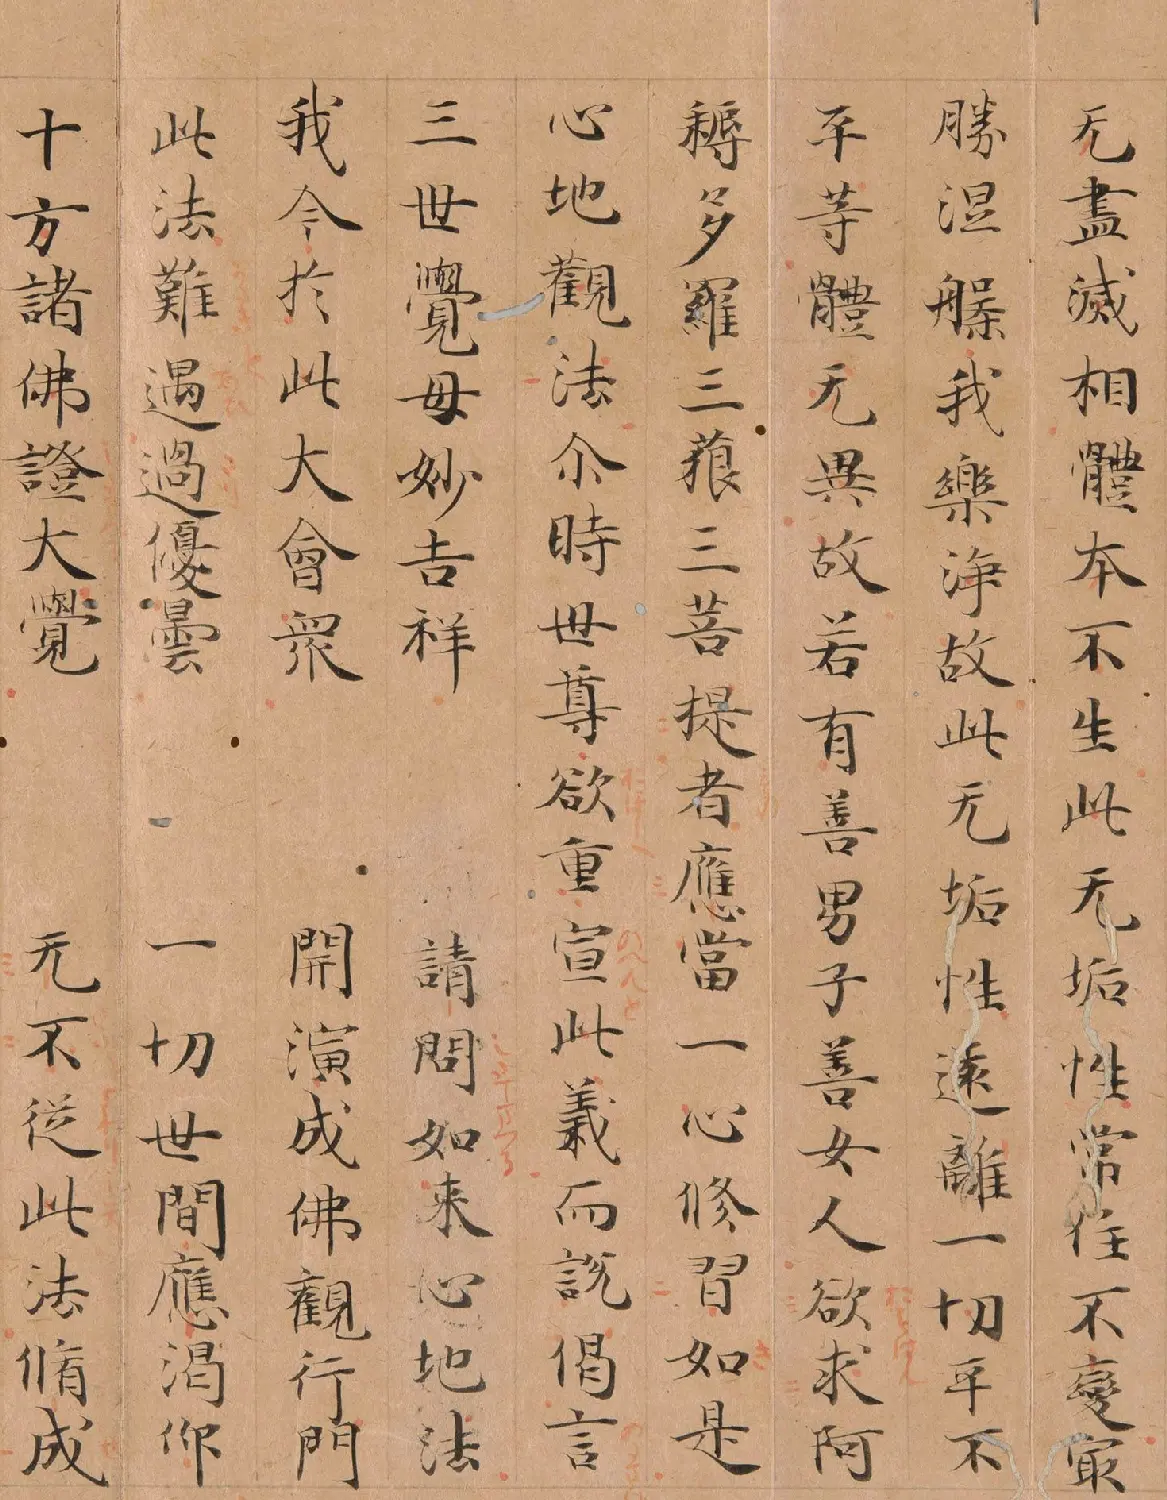 无盡滅相體本不生此无垢性常住不變冣
勝涅槃我樂淨故此无垢性遠離一切平不
平等體无異故若有善男子善女人欲求阿
耨多羅三藐三菩提者應當一心修習如是
心地觀法尒時世尊欲重宣此義而說偈言
三世覺母妙吉祥 請問如来心地法
我今於此大會衆 開演成佛觀行門
此法難遇過優曇 一切世間應渴仰
十方諸佛證大覺 无不從此法脩成